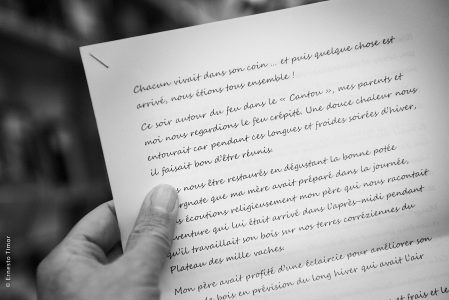 Chacun vivait dans son coin ... et puis quelque chose est
arrivé, nous étions tous ensemble !
Ce soir autour du feu dans le « Cantou », mes parents et
moi nous regardions le feu crépité. Une douce chaleur nous
entourait car pendant ces longues et froides soirées d'hiver,
il faisait bon d'être réunis.
s nous être restaurés en dégustant la bonne potée
ergnate que ma mère avait préparé dans la journée,
s écoutions religieusement mon père qui nous racontait
venture qui lui était arrivé dans l'après-midi pendant
qu'il travaillait son bois sur nos terres corréziennes du
Plateau des mille vaches.
Mon père avait profité d'une éclaircie pour améliorer son
de bois en prévision du long hiver qui avait l'air
t frais et le
© Ernesto Timor